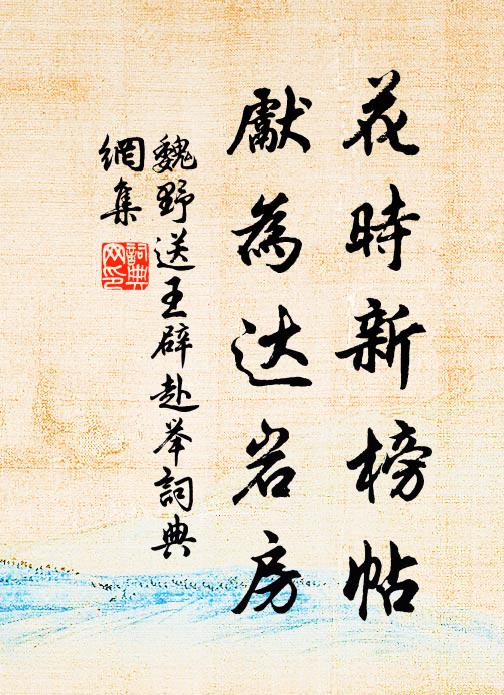 花時新榜帖
獻為达岩房
魏野送王辟赴举詞典
網集
詞典網印